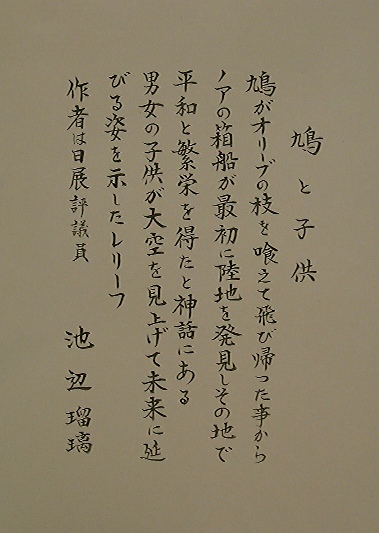 鳩と子供
鳩がオリーブの枝を喰えて飛び帰った事から
ノアの箱船が最初に陸地を発見しその地で
平和と繁栄を得たと神話にある
男女の子供が大空を見上げて未来に延
びる姿を示したレリーフ
作者は日展評議員　池辺瑠璃